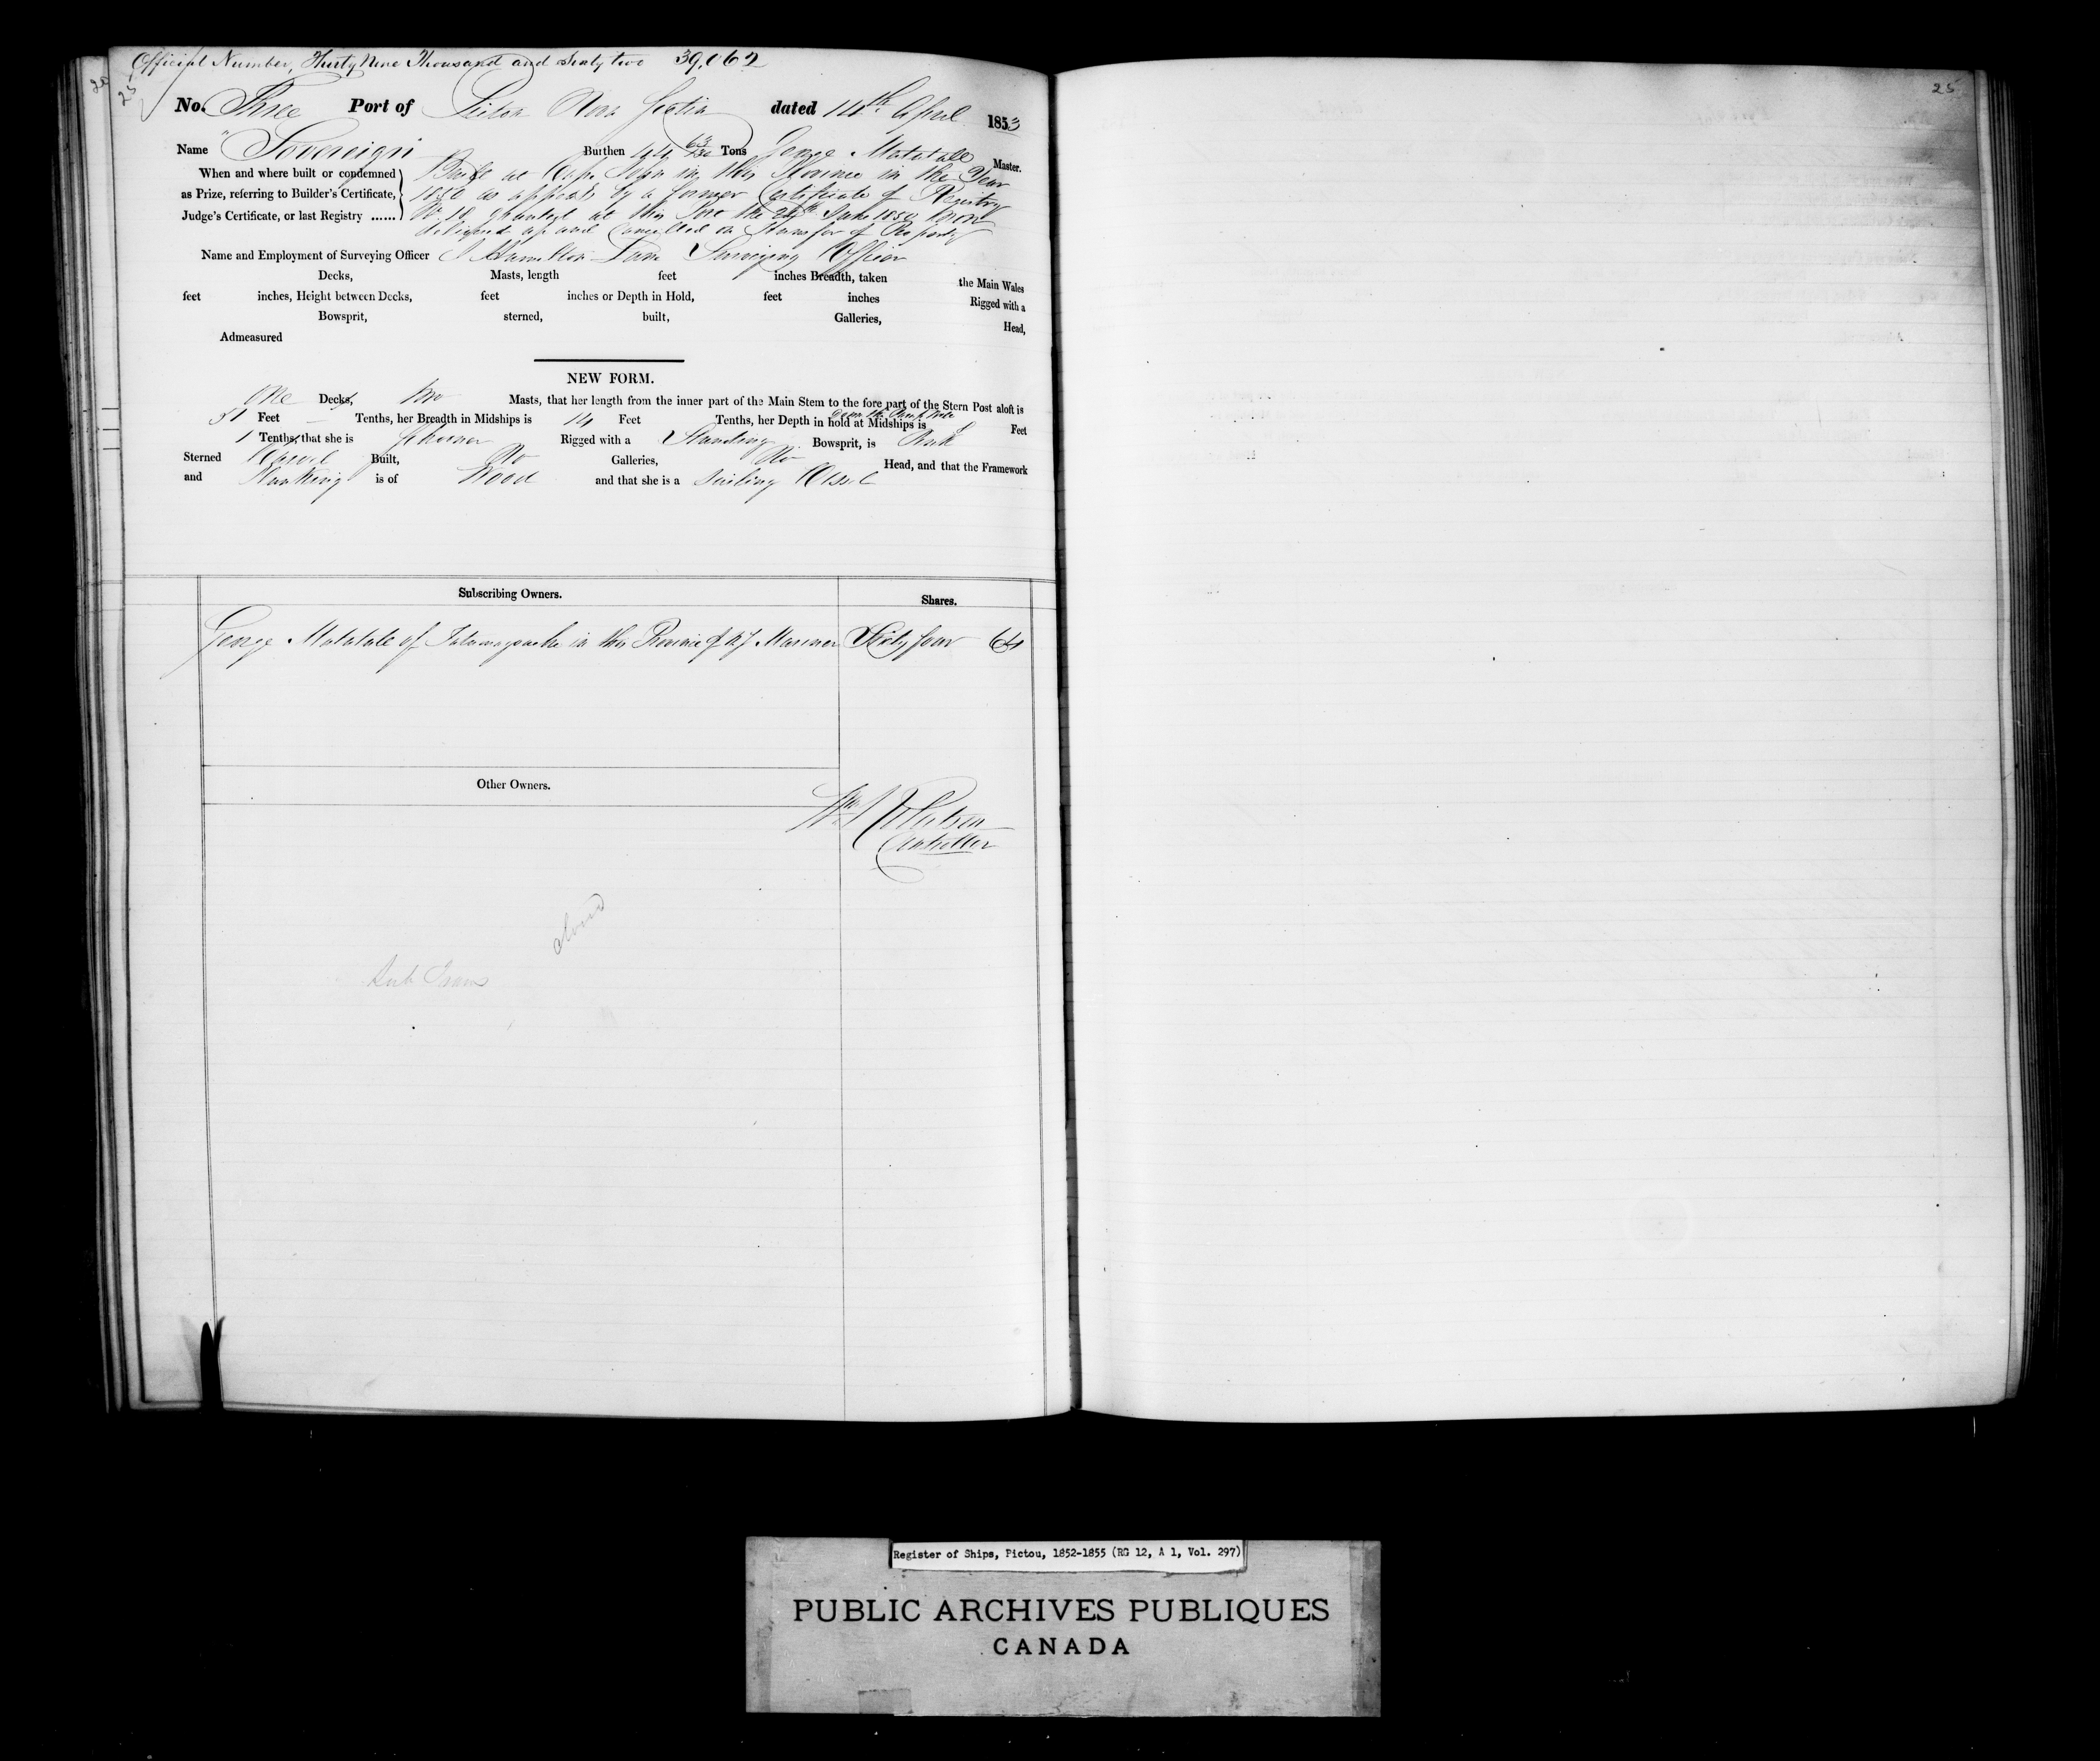 Official Number, Thirty Nine Thousand and Sixty two 39,062
25
25
No. Three Port of Pictou Nova Scotia dated 14th April 1853
Name "Sovereign Burthen 44 Tons George Matatall Master.
When and where built or condemned
as Prize, referring to Builder's Certificate,
Judge's Certificate, or last Registry ......
Built at Cape John in this Province in the Year
1850 as appears by a former Certificate of Registry
No 10 granted at this Port the 24th June 1850 now
delivered up and Cancelled on Transfer of Property
Name and Employment of Surveying Officer J Hamilton Lane Surveying Officer
Decks, Masts, length feet inches Breadth, taken the Main Wales
feet inches, Height between Decks, feet inches or Depth in Hold, feet inches Rigged with a
Bowsprit, sterned, built, Galleries, Head,
Admeasured
NEW FORM.
One Decks, two Masts, that her length from the inner part of the Main Stem to the fore part of the Stern Post aloft is
51 Feet — Tenths, her Breadth in Midships is 14 Feet Tenths, her Depth in hold at Midships is Feet
1 Tenths, that she is Schooner Rigged with a Standing Bowsprit, is
Sterned Carvel Built, No Galleries, No Head, and that the Framework
and Planking is of Wood and that she is a Sailing Vessel
Subscribing Owners. Shares.
George Matatale of Tatamagouche in this Province of N.S Mariner Sixty four 64
Other Owners.
Wm Robertson
Controller
closed
Sub Trans
Register of Ships, Pictou, 1852-1855 (RG 12, A 1, Vol. 297)
PUBLIC ARCHIVES PUBLIQUES
CANADA